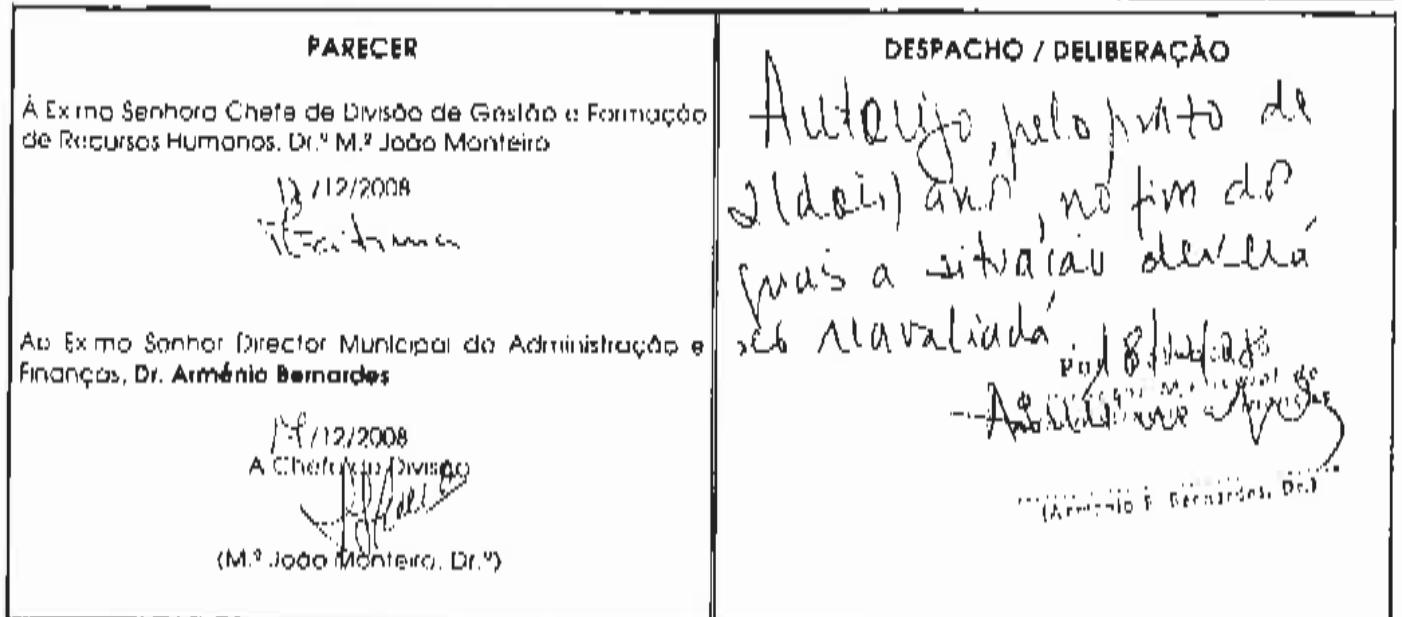 PARECER
À Exma Senhora Chefe de Divisão de Gestão e Formação
de Recursos Humanos, Dr.ª M.ª João Monteiro
/12/2008
Fátima
Ao Exmo Senhor Director Municipal de Administração e
Finanças, Dr. Arménio Bernardes
/12/2008
A Chefe de Divisão
(M.ª João Monteiro, Dr.ª)
DESPACHO / DELIBERAÇÃO
Autorizo, pelo prazo de
2 (dois) anos, no fim dos
quais a situação deverá
ser reavaliada
(Arménio F. Bernardes, Dr.)